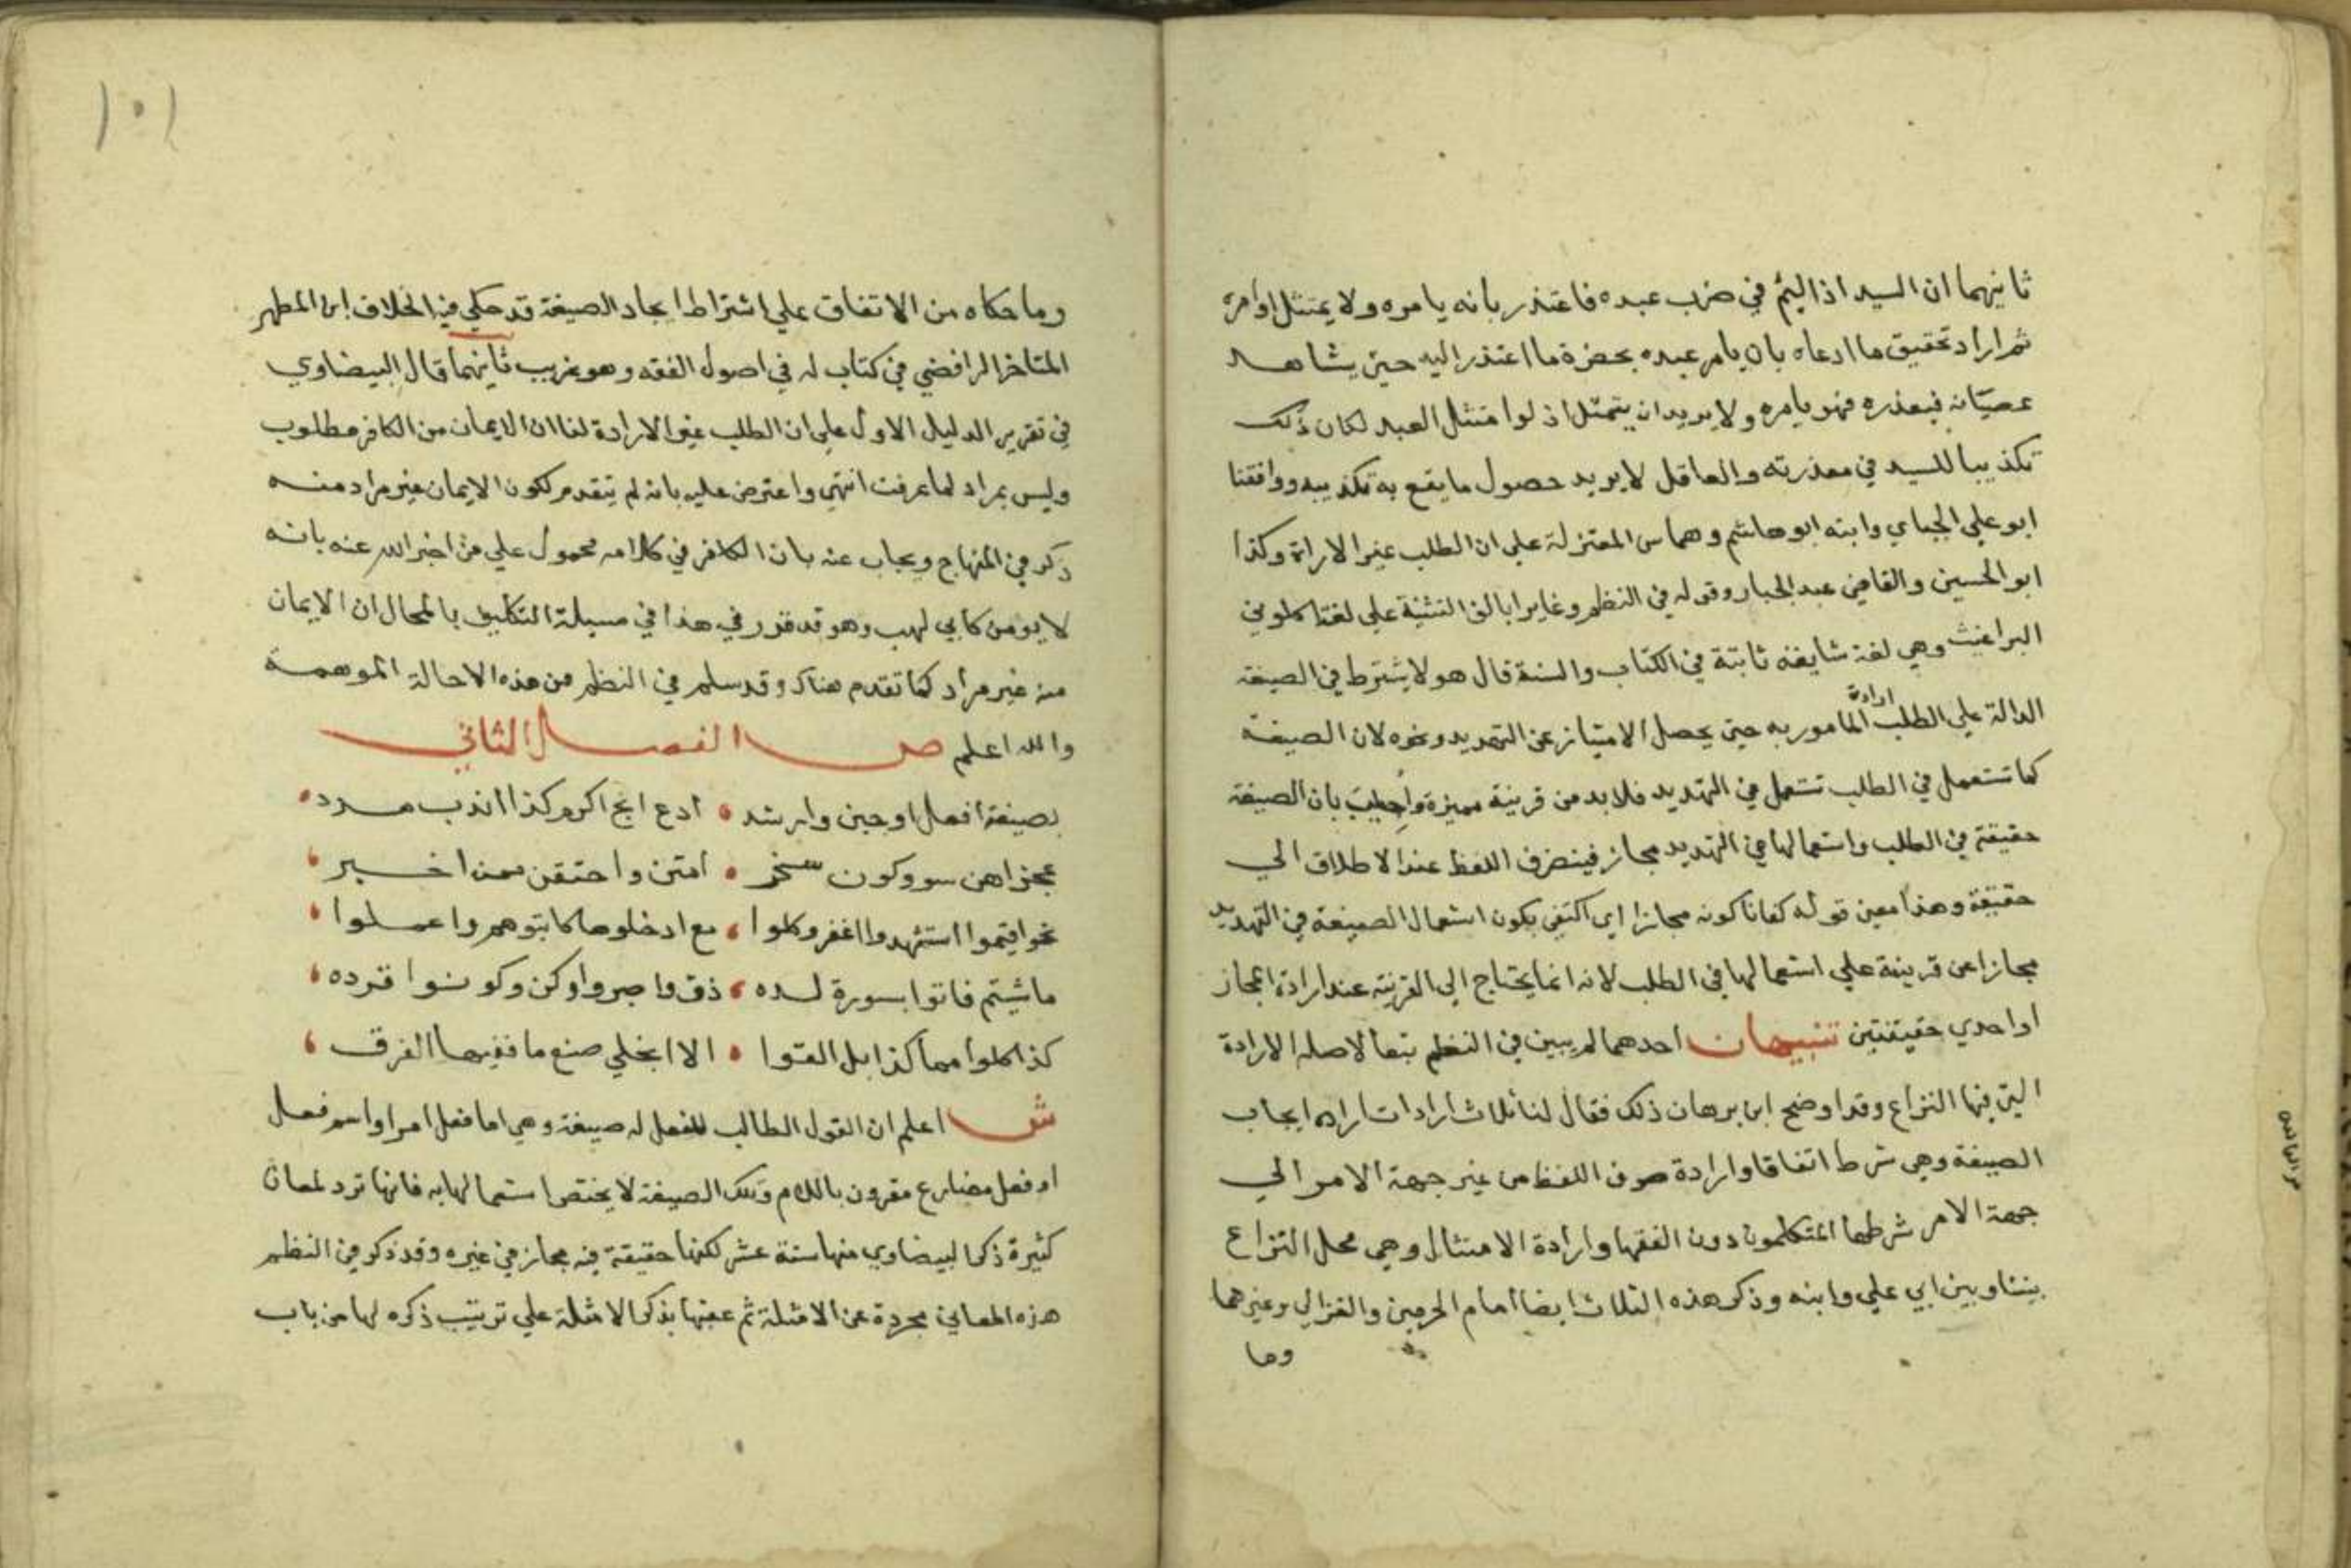 ثانيهما ان السيد اذا ليم في ضرب عبده فاعتذر بانه يامره ولا يمتثل اوامره
ثم اراد تحقيق ما ادعاه بان يامر عبده بحضرة ما اعتذر اليه حين يشاهد
عصيانه فيعذره فهو يامره ولا يريد ان يتمثل اذ لو امتثل العبد لكان ذلك
تكذيبا للسيد في معذرته والعاقل لا يريد حصول ما يقع به تكذيبه ووافقنا
ابو علي الجباي وابنه ابو هاشم وهما من المعتزلة علي ان الطلب غير الارادة وكذا
ابو الحسين والقاضي عبد الجبار وقوله في النظم وغايرا بالف التثنية علي لغة اكلوني
البراغيث وهي لغة شايعة ثابتة في الكتاب والسنة قال هو لا يشترط في الصيغة
الدالة علي الطلب ارادة المامور به حين يحصل الامتياز عن التهديد ونحوه لان الصيغة
كما تستعمل في الطلب تستعمل في التهديد فلا بد من قرينة مميزة واجيب بان الصيغة
حقيقة في الطلب واستعمالها في التهديد مجاز فينصرف اللفظ عند الاطلاق الي
حقيقة وهذا معين قوله كفانا كونه مجازا اي اكتفي بكون استعمال الصيغة في التهديد
مجازا عن قرينة علي استعمالها في الطلب لانه انما يحتاج الي القرينة عند ارادة المجاز
او احدي حقيقتين تنبيهان احدهما لم يبين في النظم تبعا لاصله الارادة
التي فيها النزاع وقد اوضح ابن برهان ذلك فقال لنا ثلاث ارادات اراده ايجاب
الصيغة وهي شرط اتفاقا وارادة صرف اللفظ من غير جهة الامر الي
جهة الامر شرطها المتكلمون دون الفقها وارادة الامتثال وهي محل النزاع
بيننا وبين ابي علي وابنه وذكر هذه الثلاث ايضا امام الحرمين والغزالي وغيرهما
وما
١٠١
وما حكاه من الاتفاق علي اشتراط ايجاد الصيغة قد حكي فيه الخلاف ابن المطهر
المتاخر الرافضي في كتاب له في اصول الفقه وهو غريب ثانيهما قال البيضاوي
في تقرير الدليل الاول علي ان الطلب غير الارادة لنا ان الايمان من الكافر مطلوب
وليس بمراد لما عرفت انتهي واعترض عليه بانه لم يتقدم لكون الايمان غير مراد منه
ذكر في المنهاج ويجاب عنه بان الكافر في كلامه محمول علي من اخبر الله عنه بانه
لا يومن كابي لهب وهو قد قرر في هذا في مسيلة التكليف بالمحال ان الايمان
منه غير مراد كما تقدم هناك وقد سلم في النظم من هذه الاحالة الموهمة
والله اعلم ص الفصل الثاني
بصيغة افعل اوجبن وارشد ، ادع ابح اكرم كذا اندب هدد ،
عجز اهن سو وكون سخر ، امتن واحتقرن تمن اخبر ،
نحو اقيموا استشهدوا اغفر وكلوا ، مع ادخلوها كاتبوهم واعملوا ،
ما شيتم فاتوا بسورة لده ، ذق واصبروا وكن وكونوا قرده ،
كذا كلوا مما كذا بل القوا ، الا انجلي صنع ما ففيها الفرق ،
ش اعلم ان القول الطالب للفعل له صيغة وهي اما فعل امر او اسم فعل
او فعل مضارع مقرون باللام وتلك الصيغة لا يختص استعمالها به فانها ترد لمعان
كثيرة ذكر البيضاوي منها ستة عشر لكنها حقيقة فيه مجاز في غيره وقد ذكر في النظم
هذه المعاني مجردة عن الامثلة ثم عقبها بذكر الامثلة علي ترتيب ذكره لها من باب